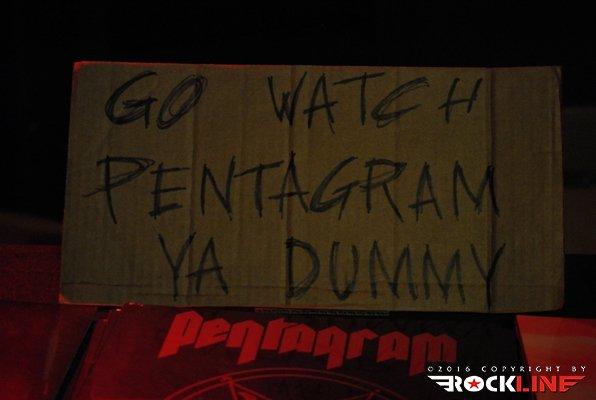 GO WATCH
PENTAGRAM
YA DUMMY
pentagram
©2016 COPYRIGHT BY
ROCKLINE